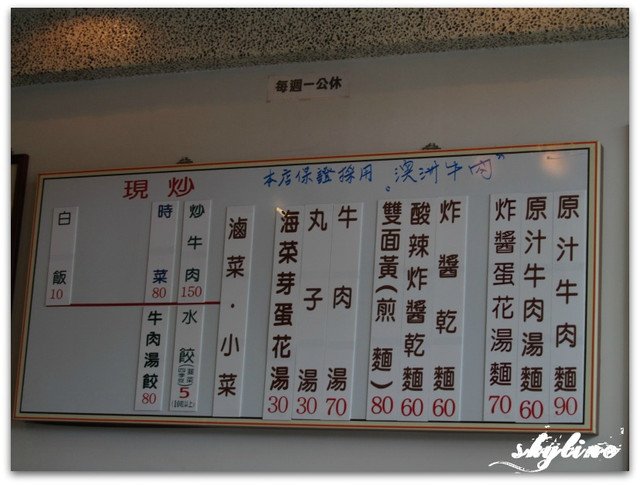 每週一公休
本店保證採用"澳洲牛肉"
現炒
原汁牛肉麵90
原汁牛肉湯麵60
炸醬蛋花湯麵70
炸醬乾麵60
酸辣炸醬乾麵60
雙面黃(煎麵)80
牛肉湯70
丸子湯30
海菜芽蛋花湯30
滷菜·小菜
炒牛肉150
時菜80
白飯10
水餃5
牛肉湯餃80
skyline